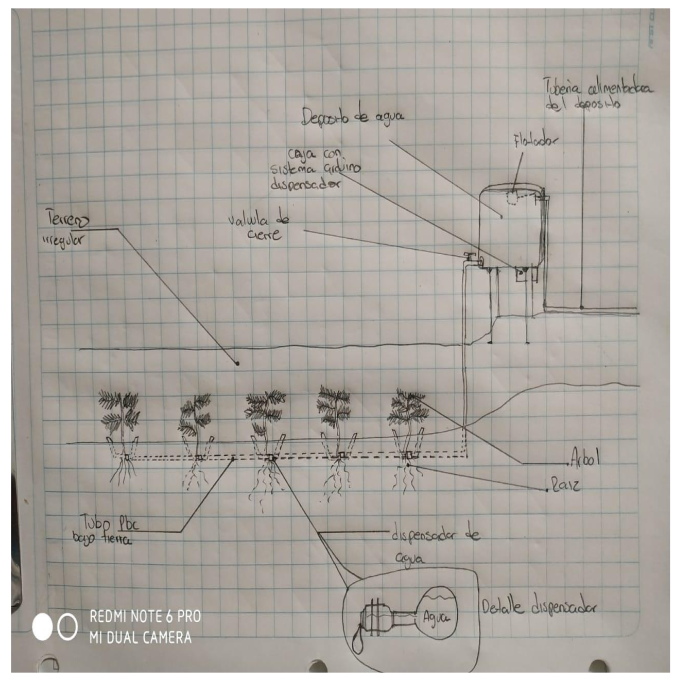 Tuberia alimentadora
del deposito
Deposito de agua
Flotador
Caja con
sistema arduino
dispensador
Terreno
irregular
valvula de
cierre
Arbol
Raiz
Tubo Pbc
bajo tierra
dispensador de
agua
Agua
Detalle dispensador
REDMI NOTE 6 PRO
MI DUAL CAMERA